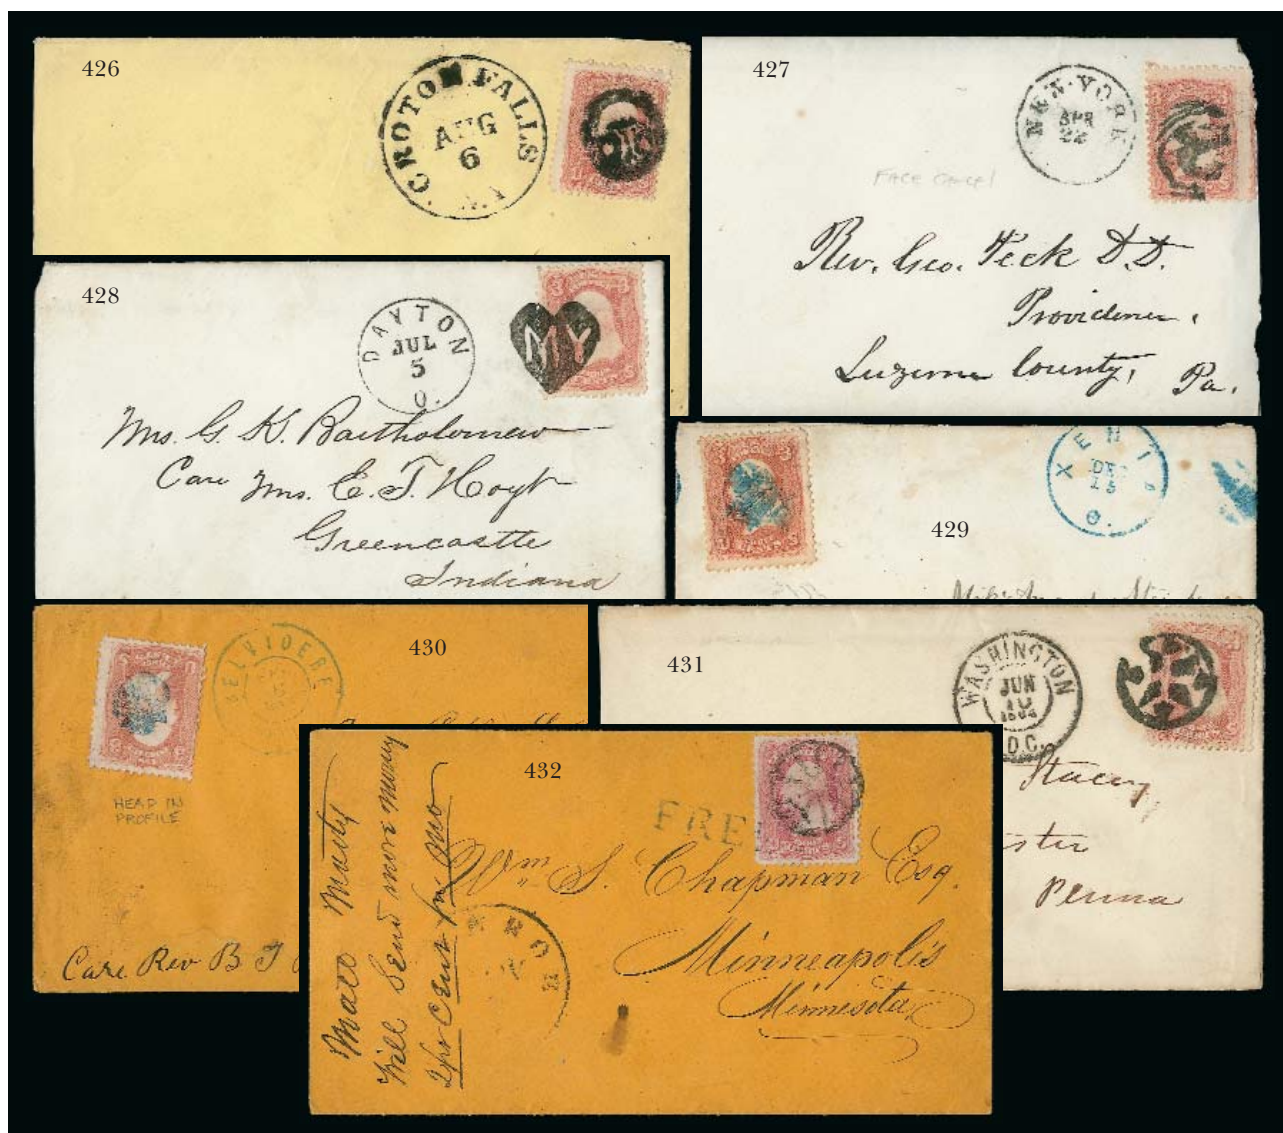 426
CROTON FALLS
AUG
6
N.Y
427
NEW-YORK
APR
22
FACE CANCEL
Rev. Geo. Peck D.D.
Providence,
Luzerne County,
Pa.
428
DAYTON
JUL
5
O.
MY
Mrs. G. K. Bartholomew
Care Mrs. E. T. Hoyt
Greencastle
Indiana
429
XENIA
DEC
15
O.
430
BELVIDERE
HEAD IN
PROFILE
Care Rev B T
431
WASHINGTON
JUN
10
D.C.
Stacey
ster
Penna
432
FREE
Wm S. Chapman Esq.
Minneapolis
Minnesota
will send more money
2 per Cent per Mo